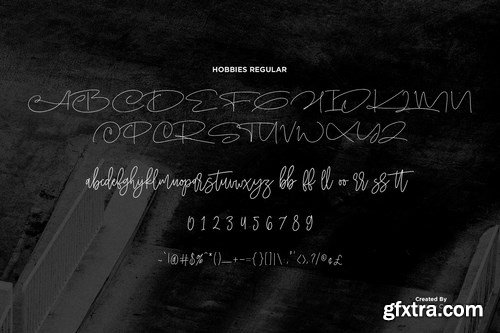 HOBBIES REGULAR
ABCDEFGHIJKLMN
OPQRSTUVWXYZ
abcdefghijklmnopqrstuvwxyz bb ff ll oo rr ss tt
0123456789
~`!@#$%^*()_+-={}[]|\,."'<>.?/©¢£
Created By
gfxtra.com